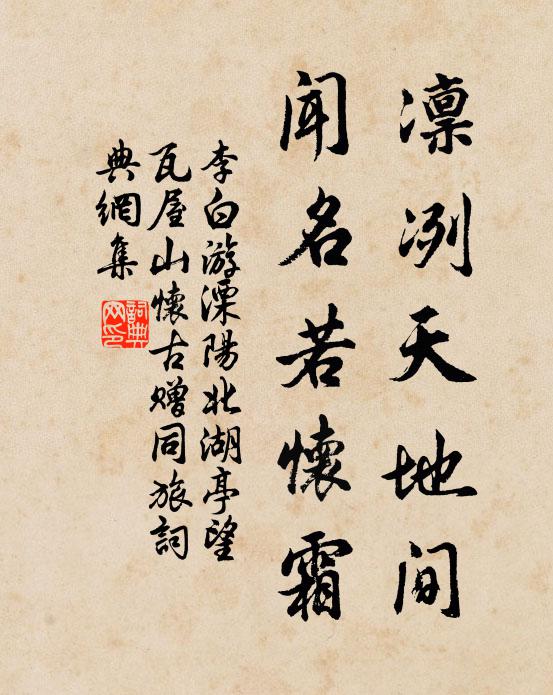 凛冽天地间
闻名若懷霜
李白游溧陽北湖亭望
瓦屋山懷古赠同旅詞
典網集
詞典
网印